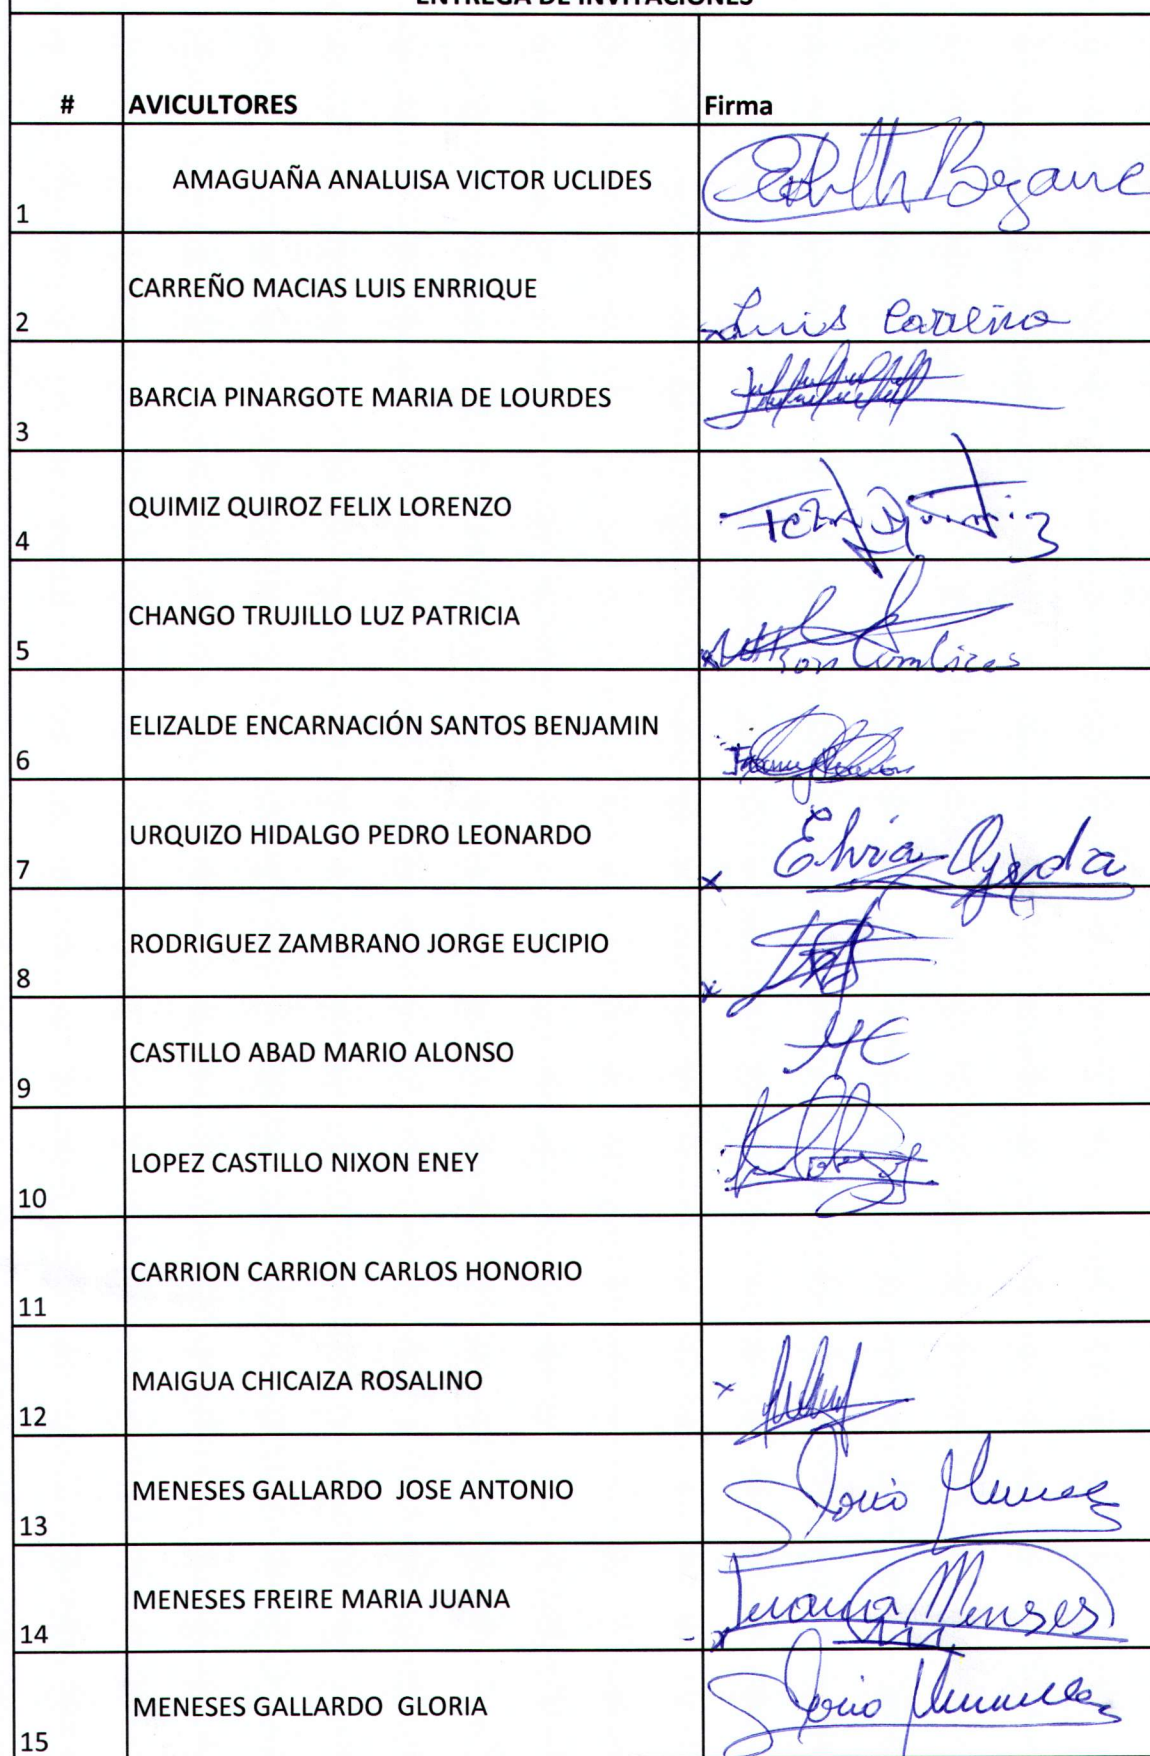 ENTREGA DE INVITACIONES
# AVICULTORES Firma
1 AMAGUAÑA ANALUISA VICTOR UCLIDES
2 CARREÑO MACIAS LUIS ENRRIQUE Luis Carreño
3 BARCIA PINARGOTE MARIA DE LOURDES
4 QUIMIZ QUIROZ FELIX LORENZO
5 CHANGO TRUJILLO LUZ PATRICIA
6 ELIZALDE ENCARNACIÓN SANTOS BENJAMIN
7 URQUIZO HIDALGO PEDRO LEONARDO x Ojeda
8 RODRIGUEZ ZAMBRANO JORGE EUCIPIO x
9 CASTILLO ABAD MARIO ALONSO
10 LOPEZ CASTILLO NIXON ENEY
11 CARRION CARRION CARLOS HONORIO
12 MAIGUA CHICAIZA ROSALINO x
13 MENESES GALLARDO JOSE ANTONIO
14 MENESES FREIRE MARIA JUANA Juana Meneses
15 MENESES GALLARDO GLORIA